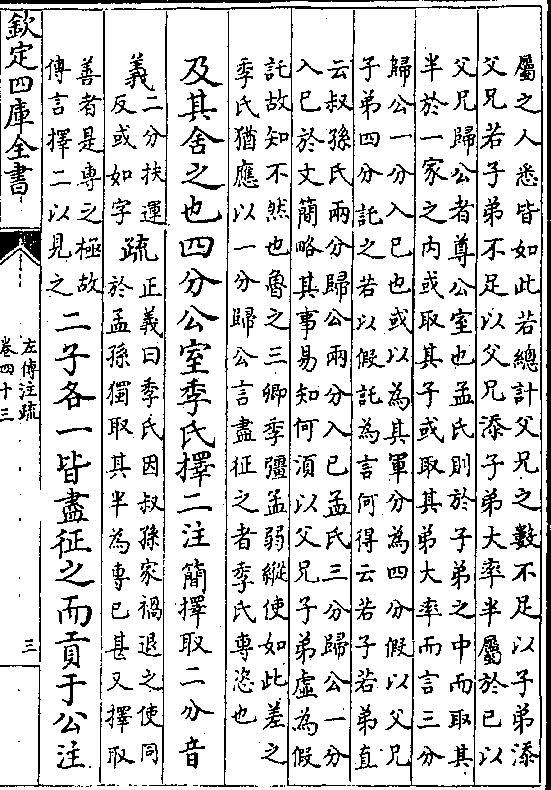 屬之人悉皆如此若總計父兄之數不足以子弟添
父兄若子弟不足以父兄添子弟大率半屬於已以
父兄歸公者尊公室也孟氏則於子弟之中而取其
半於一家之内或取其子或取其弟大率而言三分
歸公一分入已也或以為其軍分為四分假以父兄
子弟四分託之若以假託為言何得云若子若弟直
云叔孫氏兩分歸公兩分入已孟氏三分歸公一分
入已於文簡略其事易知何須以父兄子弟虚為假
託故知不然也魯之三卿季彊孟弱縱使如此差之
季氏猶應以一分歸公言盡征之者季氏專恣也
及其舍之也四分公室季氏擇二注簡擇取二分音
義二分扶運
反或如字疏正義曰季氏因叔孫家禍退之使同
於孟孫獨取其半為專已甚又擇取
善者是専之極故
傳言擇二以見之二子各一皆盡征之而貢于公注
欽定四庫全書
左傳注疏
卷四十三
三